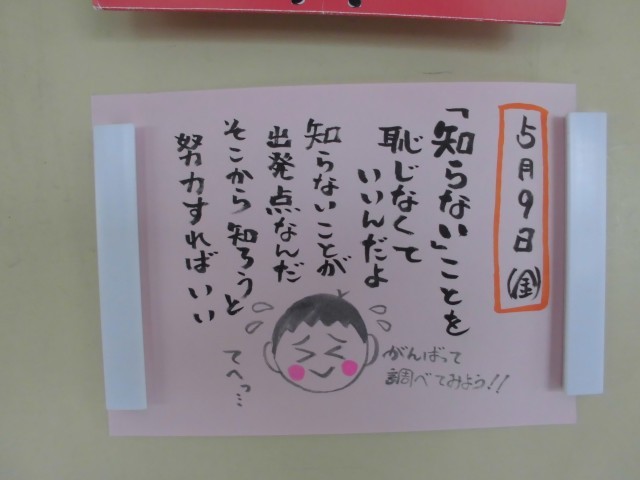 5月9日(金)
「知らない」ことを
恥じなくて
いいんだよ
知らないことが
出発点なんだ
そこから知ろうと
努力すればいい
がんばって
調べてみよう!!
てへっ…